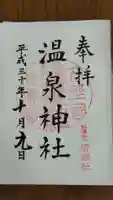 奉拝
温泉神社
平成三十年十月九日